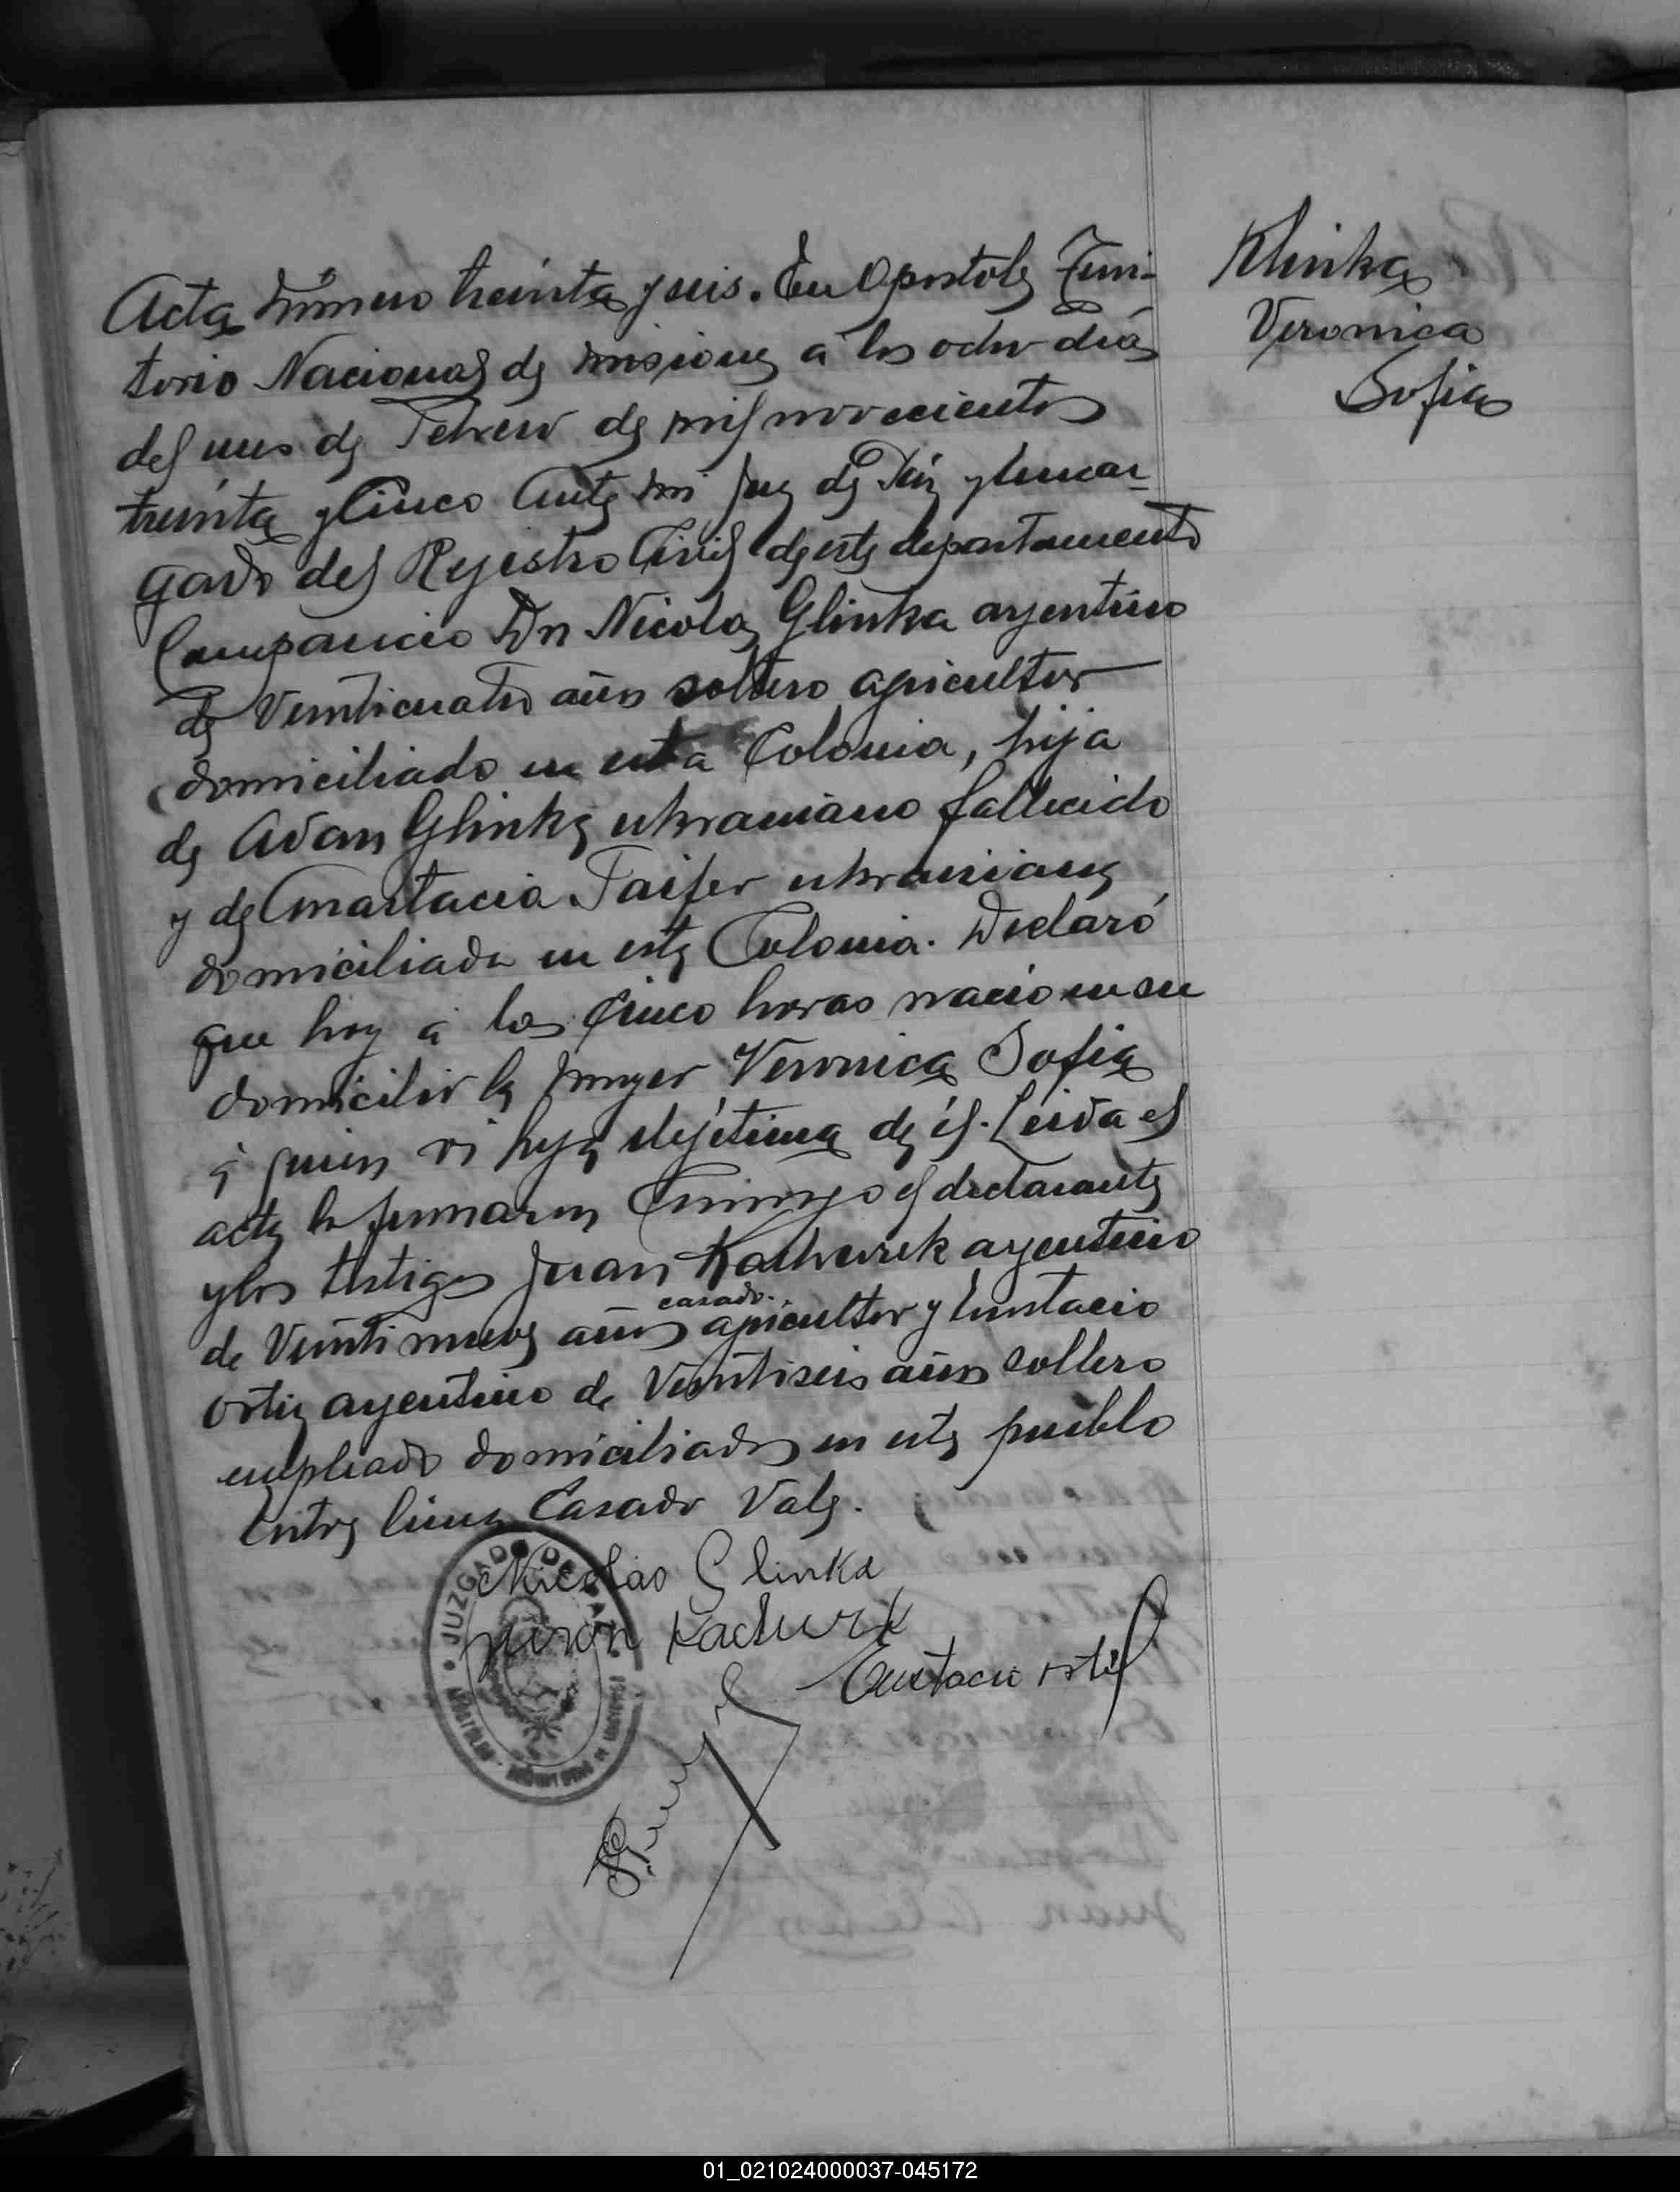 Acta Número treinta y seis. En Apostoles Terri-
torio Nacional de Misiones a los ocho dias
del mes de Febrero de mil novecientos
treinta y cinco Ante mi Juez de Paz y Encar-
gado del Rejistro Civil de este departamento
Comparecio Dn Nicolas Glinka argentino
de Veinticuatro años soltero agricultor
domiciliado en esta Colonia, hijo
de Adan Glinka ukraniano fallecido
y de Anastacia ukraniana
domiciliada en esta Colonia. Declaró
que hoy a las cinco horas nacio en su
domicilio la mujer Veronica Sofia
a quien hija de él. Leida el
acta la firmaron Conmigo el declarante
y los testigos Juan Kachurek argentino
de Veintinueve años agricultor y Eustacio
casado.
Ortiz argentino de Veintiseis años soltero
empleado domiciliados en este pueblo
Entre lineas Casado Vale.
Nicolas Glinka
Juan Kachurk
Eustacio Ortiz
JUZGADO DE PAZ
APOSTOLES
Klinka
Veronica
Sofia
01_021024000037-045172